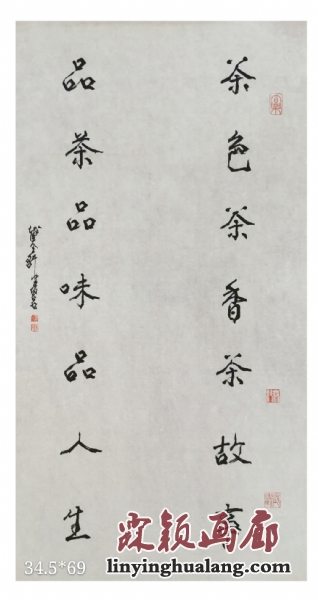 茶色茶香茶故事
品茶品味品人生
霖颖画廊
34.5*69
linyinghualang.com